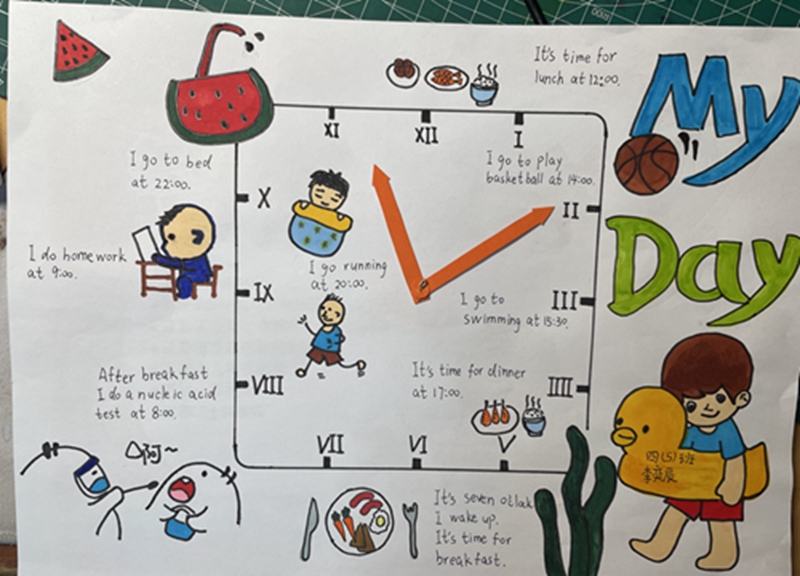 It's time for
lunch at 12:00.
My
Day
XI
XII
I
I go to bed
at 22:00.
I go to play
basketball at 14:00.
X
II
I do homework
at 9:00.
I go running
at 20:00.
IX
I go to
swimming at 15:30.
III
After breakfast
I do a nucleic acid
test at 8:00.
VIII
It's time for dinner
at 17:00.
IIII
VII
VI
V
啊~
四(5)班
It's seven o'clak
I wake up.
It's time for
breakfast.